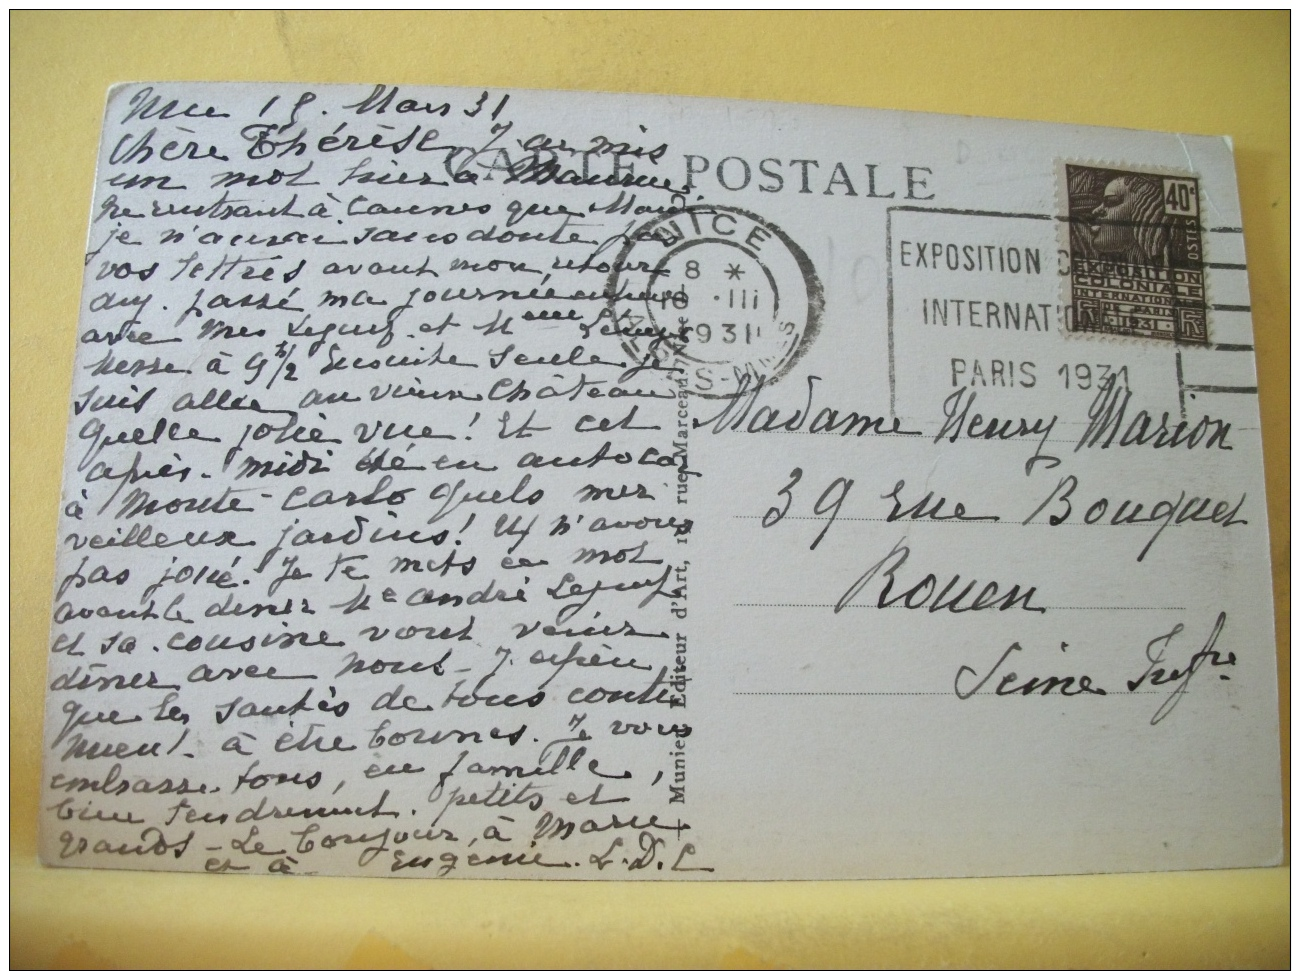 15. Mars 31
Chère Thérèse, J'ai mis
un mot hier à
rentrant à Cannes que Mardi
je n'aurai sans doute pas
vos lettres avant mon retour
auj. passé ma journée
avec Mes Leguef et Mme
Messe à 9h 1/2 Ensuite seule je
suis allée au vieux Château
Quelle jolie vue! Et cet
après-midi été en autocar
à Monte-Carlo Quels mer
veilleux jardins! Ns n'avons
pas joué. Je te mets ce mot
avant le diner Me andré Leguef
et sa cousine vont venir
dîner avec nous - J'espère
que les santés de tous conti
nuent à être bonnes. Je vous
embrasse tous, en famille,
bien tendrement. petits et
grands - Le bonjour, à Marie
et à Eugénie. L.D.L
CARTE POSTALE
Munier, Editeur d'Art, rue Marceau, Nice
NICE
8 *
III
1931
ALPES-MMES
EXPOSITION
INTERNAT
PARIS 1931
40c
POSTES
EXPOSITION
COLONIALE
INTERNATIONALE
PARIS
1931
RF RF
Madame Henry Marion
39 Rue Bouquet
Rouen
Seine Infre